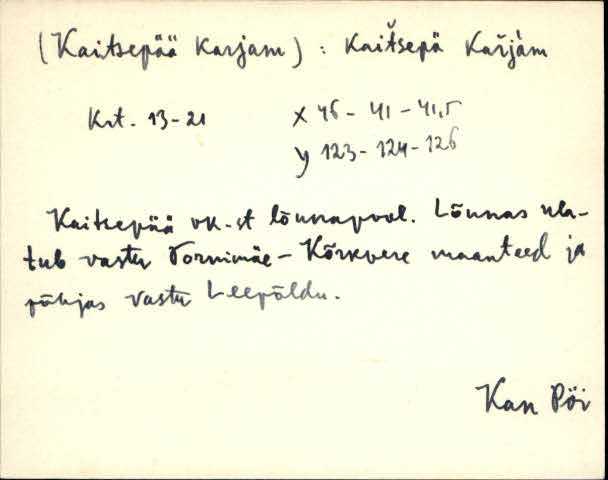 (Kaitsepää Karjam) : Kaiťsepä Kařjàm
Krt. 13-21 x 46 - 41 - 41,5
y 123 - 124 - 126
Kaitsepää vk.-st lõunapool. Lõunas ula-
tub vastu Tornimäe - Kõrkvere maanteed ja
põhjas vastu Leepõldu.
Kan Pöi